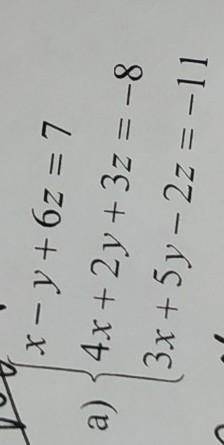 x − y + 6z = 7
a) 4x + 2y + 3z = −8
3x + 5y − 2z = −11